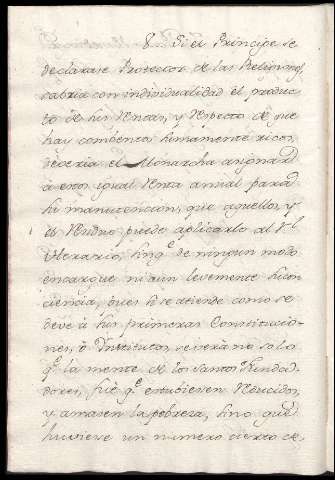 8. Si el Principe se
declarase Protector de las Religiones,
sabria con individualidad el produc
to de sus Rentas, y respecto de que
hay combentos sumamente ricos,
deveria el Monarcha asignar
à estos igual renta anual para
su manutencion, que aquellos, y
el residuo puede aplicarlo al Rl.
Herario, sin qe. de ningun modo
encargue ni aun levemente su con
ciencia, pues si se atiende como se
deve à sus primeras Constitucio-
nes, ò Institutos, se verà no solo
qe. la mente de los Santos Funda-
dores, fue qe. estubiesen reducidos,
y amasen la pobreza, sino que
huviese un numero cierto de